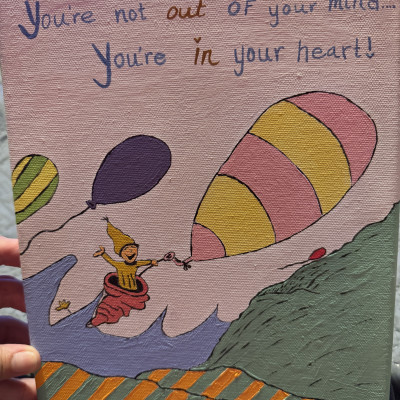 You're not out of your mind....
You're in your heart!